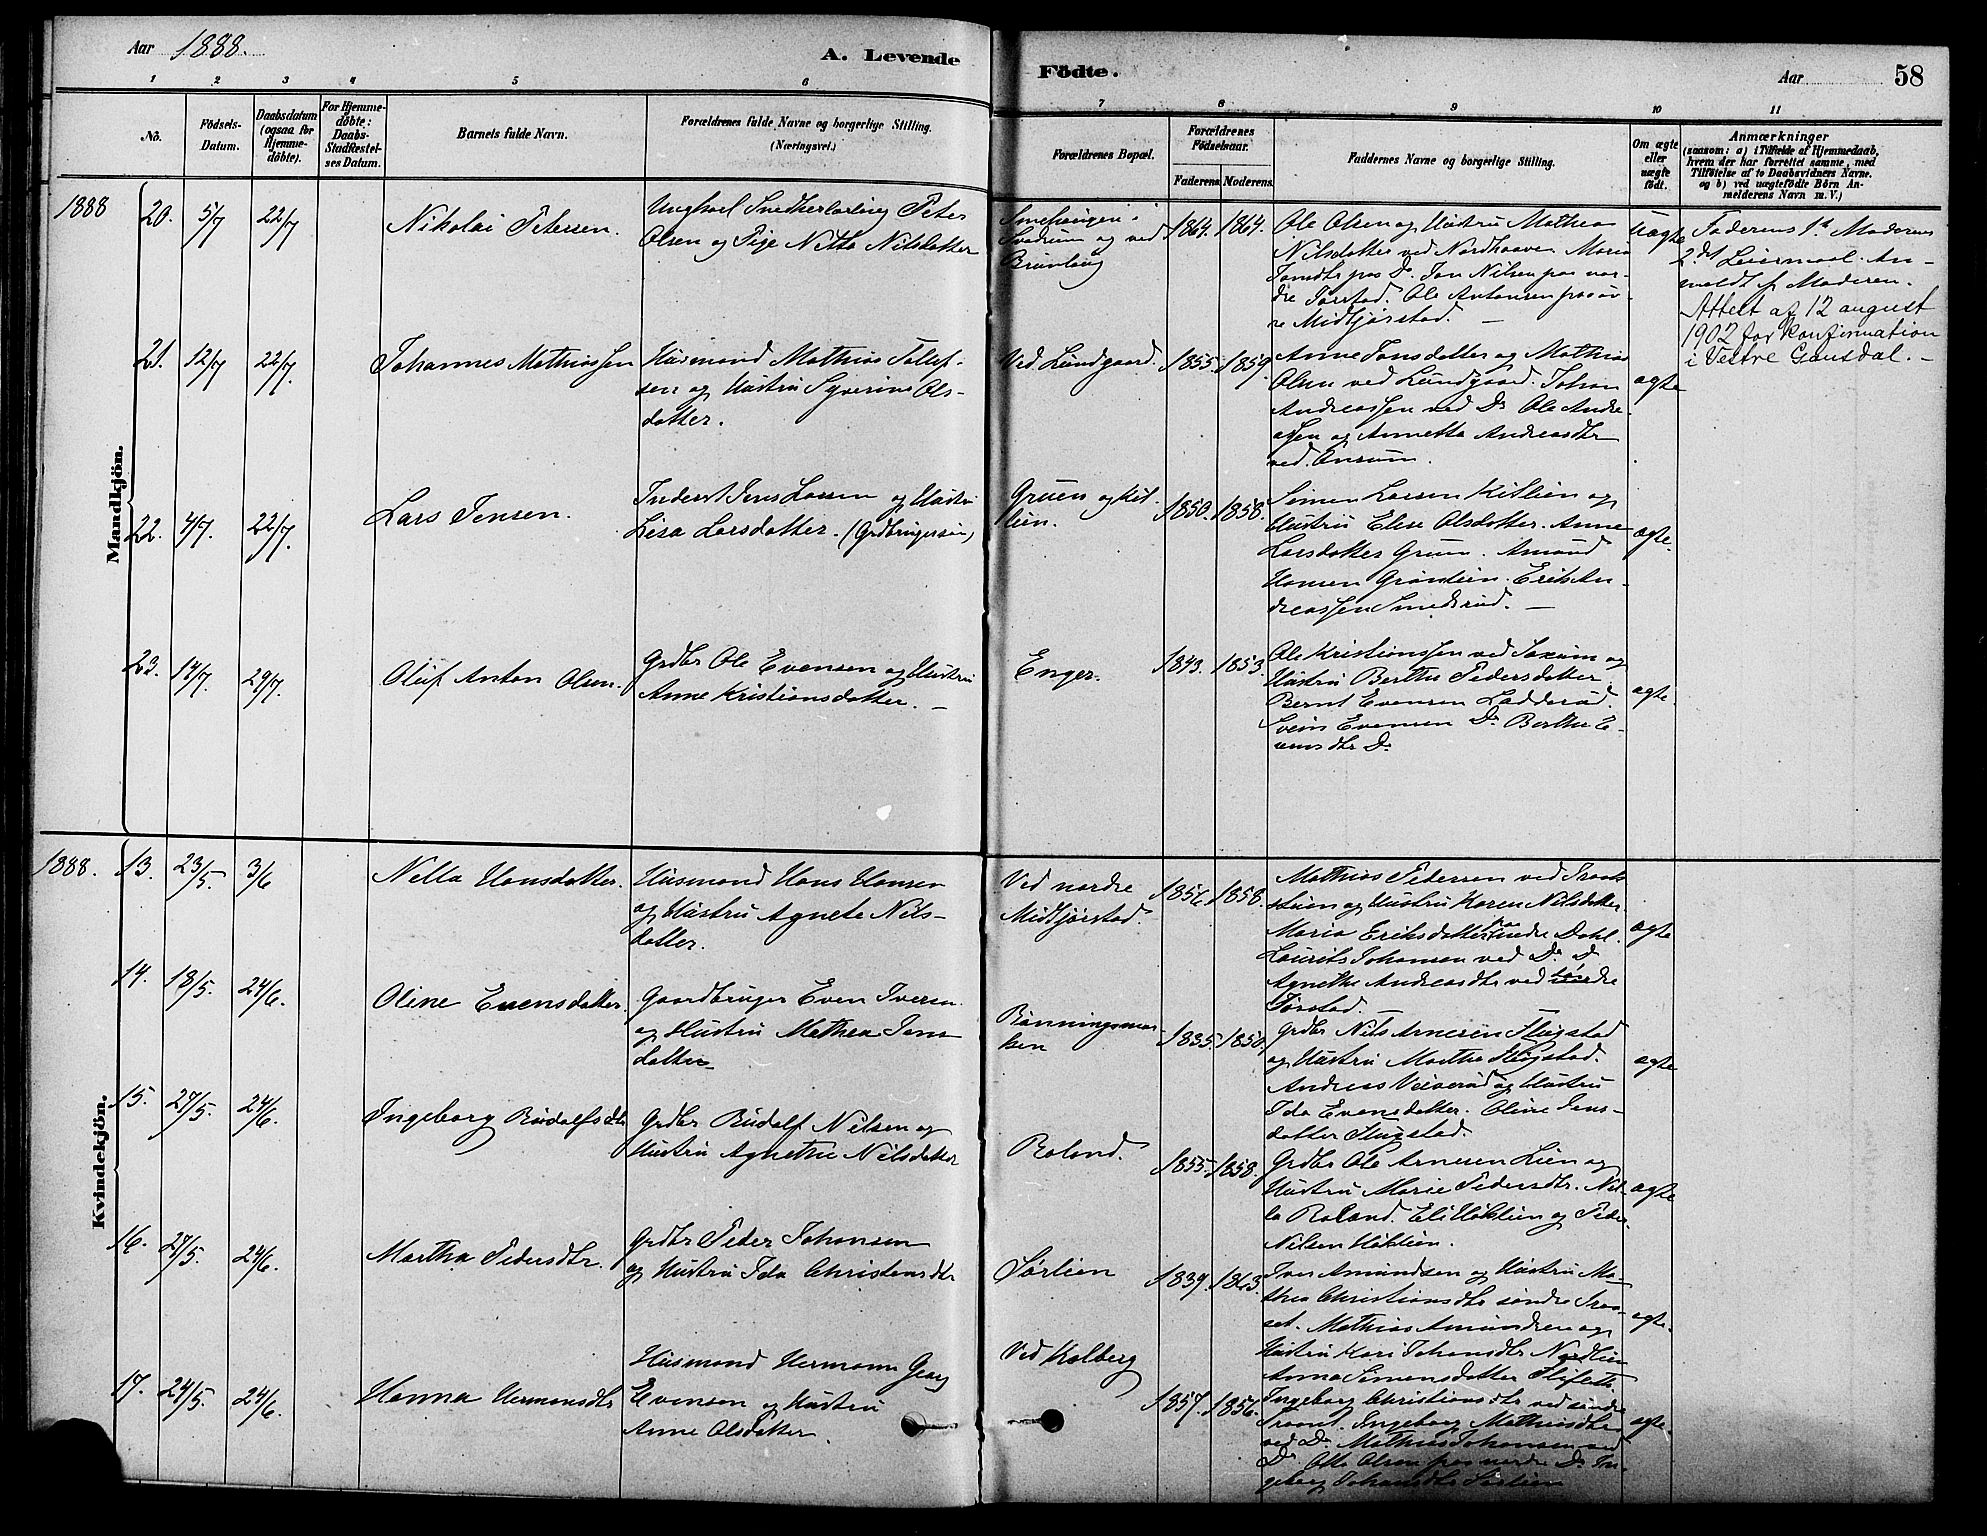 Aar 1888.
A. Levende
Födte.
Aar
58
1 2 3 4 5 6
7 8 9 10 11
No.
Födsels-
Datum.
Daabsdatum
(ogsaa for
Hjemme-
döbte).
For Hjemme-
döbte:
Daabs-
Stadfæstel-
ses Datum.
Barnets fulde Navn.
Forældrenes fulde Navne og borgerlige Stilling.
(Næringsvei.)
Forældrenes Bopæl.
Forældrenes
Födselsaar.
Faderens Moderens
Faddernes Navne og borgerlige Stilling.
Om ægte
eller
uægte
födt.
Anmærkninger
(saasom: a) i Tilfælde af Hjemmedaab,
hvem der har forrettet samme, med
Tilföielse af to Daabsvidners Navne.
og b) ved uægtefödte Börn An-
melderens Navn m. V.)
Mandkjön.
1888
20. 5/7 22/7
Nikolai Petersen.
Ungkarl Snedkerlærling Peter
Olsen og Pige Netta Nilsdatter
Svadrum og ved
1864. 1864.
Ole Olsen og Hustru Mathea
Nilsdatter ved Nordhaave. Maria
Jonsdtr paa Do. Jon Nilsen paa nor-
dre Jørstad. Ole Antonsen paa øv-
re Midtjørstad. —
Uægte
Faderens 1st Moderens
2det Leiermaal. An-
meldt af Moderen.
Attest af 12 august
1902 for Konfirmation
i Vestre Gausdal. —
21. 12/7 22/7.
Johannes Mathiassen
Husmand Mathias Tollef-
sen og Hustru Syverine Ols-
datter.
Ved Lundgaard.
1855. 1859.
Anne Jonsdatter og Mathias
Olsen ved Lundgaard. Johan
Andreassen ved Do Ole Andre-
assen og Annette Andreasdtr
ved
ægte
22. 4/7 22/7.
Lars Jensen.
Inderst Jens Larsen og Hustru
Lisa Larsdatter. (Grdbrugersøn)
Gruen og Kit-
lien.
1850. 1858.
Simen Larsen Kitlien og
Hustru Elise Olsdatter. Anne
Larsdatter Gruen. Amund
Hansen Grønlien. Erik An-
dreassen Smedsrud. —
ægte.
23. 14/7. 29/7.
Oluf Anton Olsen.
Grdbr Ole Evensen og Hustru
Anne Kristiansdatter. —
Enger.
1843. 1853.
Ole Kristianssen ved Saxum og
Hustru Berthe Pedersdatter
Bernt Evensen Ladderud.
Svein Evensen Do Berthe E-
vensdtr Do
ægte.
Kvindekjön.
1888.
13. 23/5. 3/6
Nella Hansdatter.
Husmand Hans Hansen
og Hustru Agnete Nils-
datter.
Ved nordre
Midtjørstad.
1856. 1858.
Mathias Pedersen ved
og Hustru Karen Nilsdatter.
Maria Eriksdatter paa nedre Dahl.
Laurits Johansen ved Do
Agnethe Andreasdtr ved søndre
Jørstad. —
ægte
14. 18/5. 24/6.
Oline Evensdatter
Gaardbruger Even Iversen
og Hustru Mathea Jens-
datter
Rønningsmar-
ken
1835. 1850.
Grdbr Nils Arnesen Flugstad
og Hustru Marthe Flugstad.
Andreas Veiverud og Hustru
Ida Evensdatter. Oline Jens-
datter Flugstad.
ægte
15. 27/5. 24/6.
Ingeborg Rudolfsdtr
Grdbr Rudolf Nilsen og
Hustru Agnethe Nilsdatter
Roland.
1855. 1858.
Grdbr Ole Arnesen Lien og
Hustru Marie Pedersdtr. Nil-
la Roland. Eli Haklien og Peder
Nilsen Haklien.
ægte
16. 27/5. 24/6.
Martha Pedersdtr.
Grdbr Peder Johansen
og Hustru Ida Christensdtr
Sørlien
1839. 1843.
Iver Amundsen og Hustru Ma-
thea Christiansdtr søndre Traa-
set. Mathias Amundsen og
Hustru Kari Johansdtr Nordlien
Anna Simensdatter
ægte.
17. 24/5. 24/6.
Hanna Hermansdtr
Husmand Hermann Georg
Evensen og Hustru
Anne Olsdatter.
Ved Kalberg
1857. 1856.
Ingeborg Christiansdtr ved søndre
Ingeborg Mathiasdtr
ved Do. Mathias Johansen ved
Do Otto Olsen paa nordre Do In-
geborg Johansdtr Sørlien
ægte.